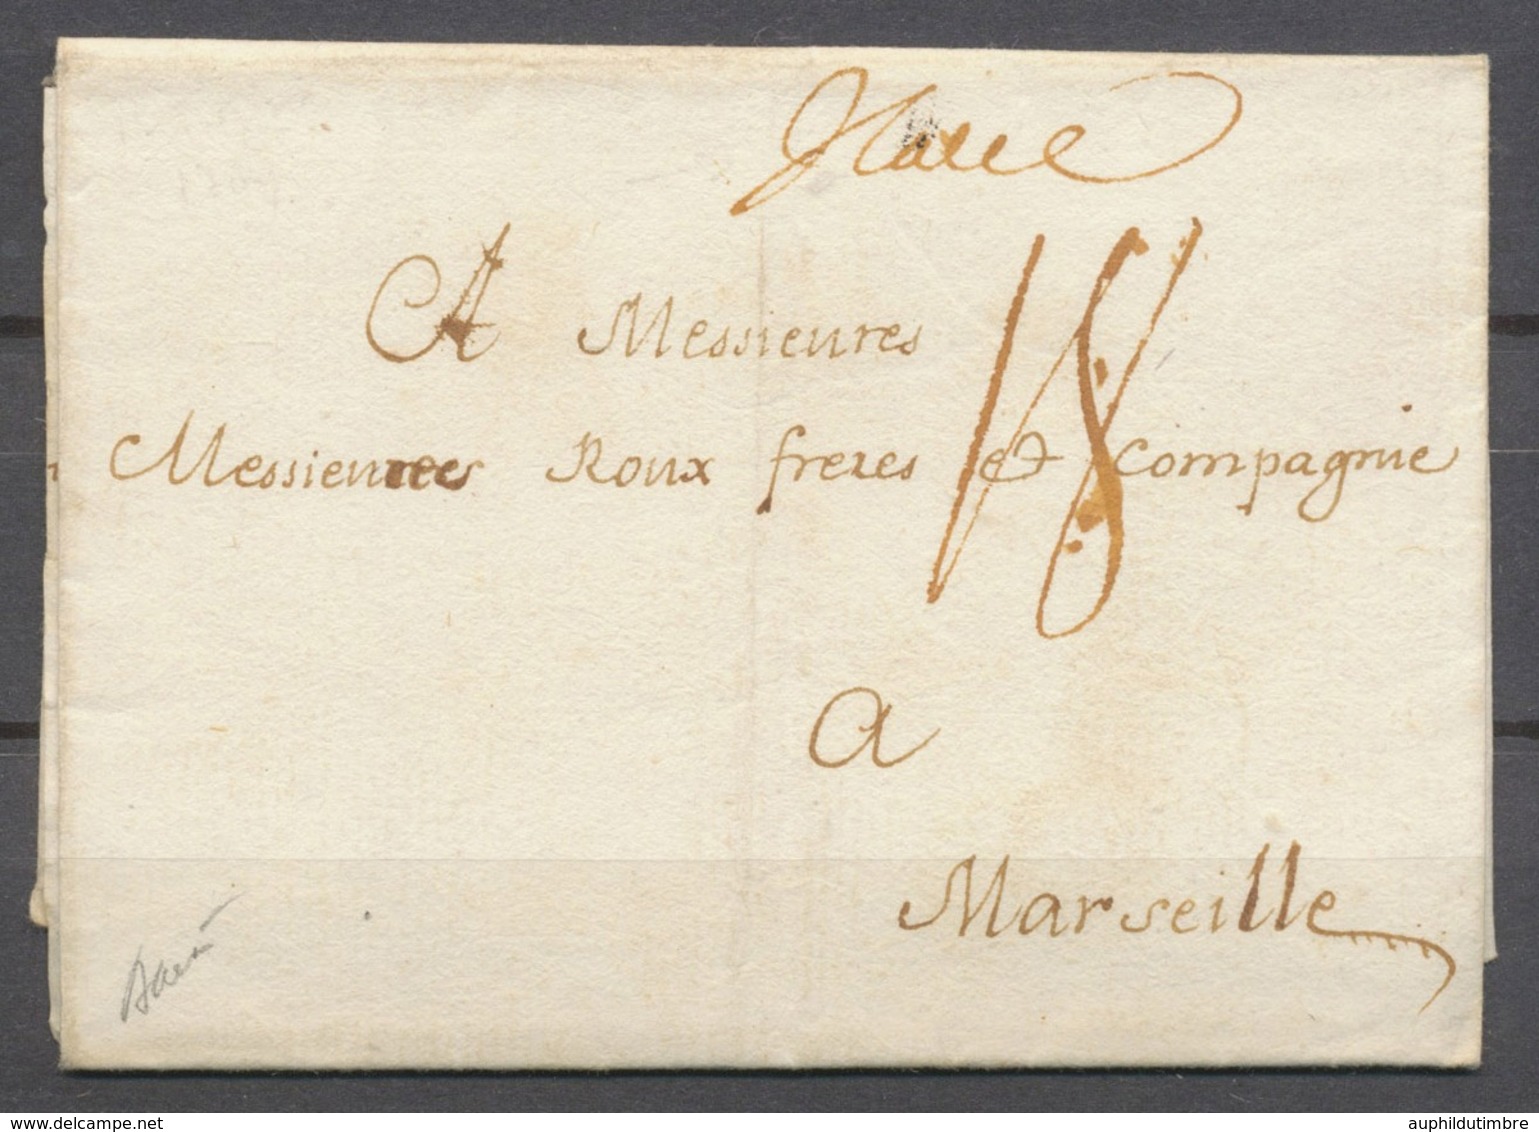 18
A Messieures
Messieurees Roux freres et compagnie
a
Marseille
auphildutimbre
www.delcampe.net